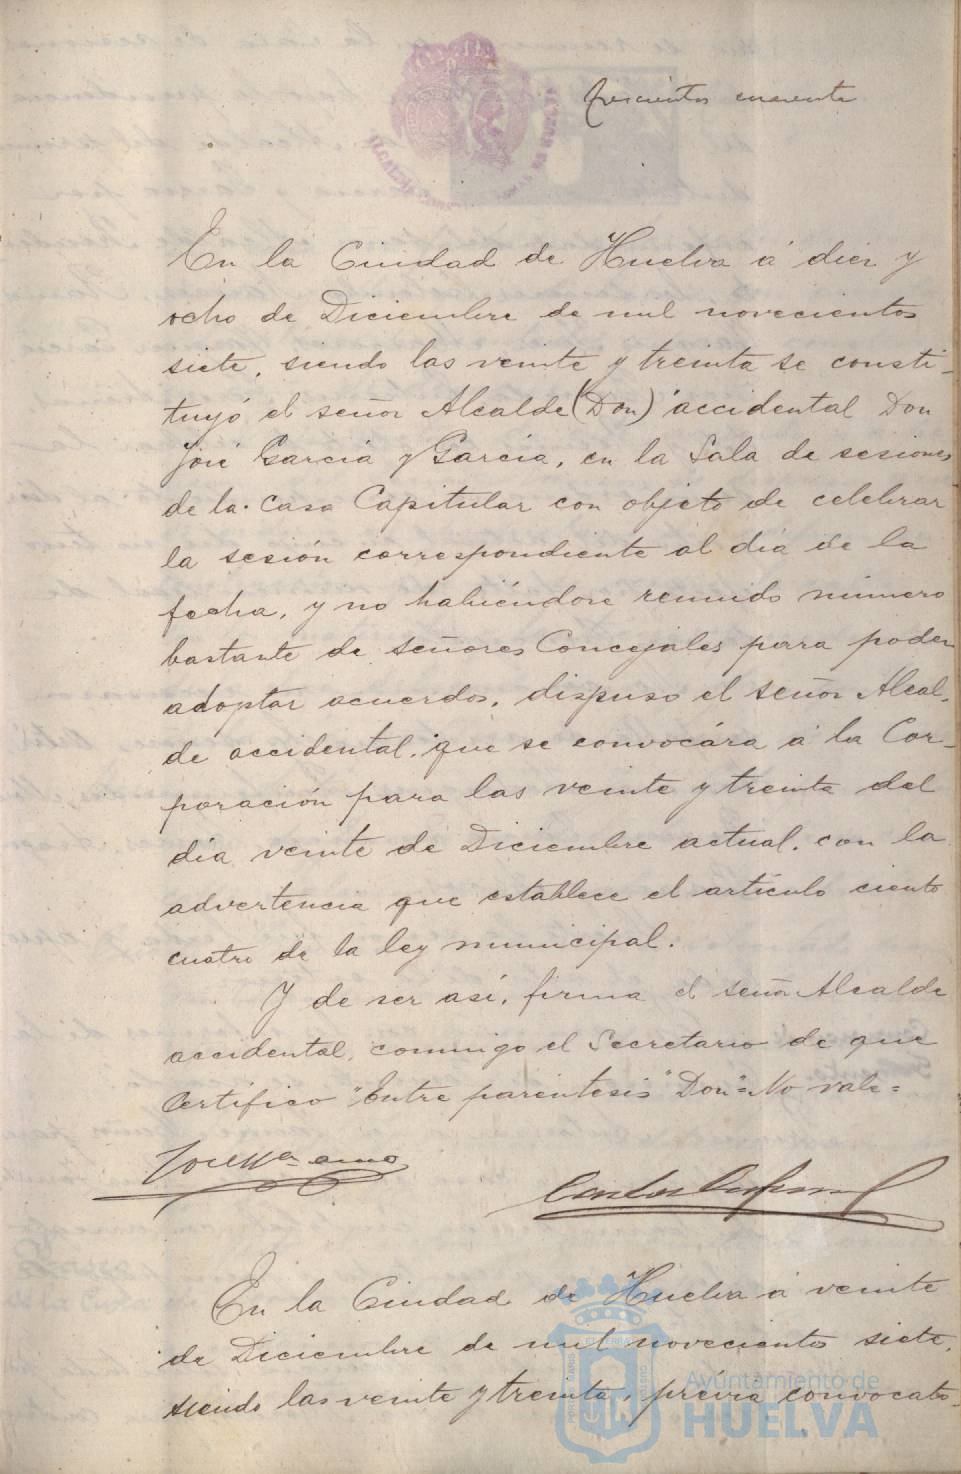 trescientos cuarenta
En la Ciudad de Huelva á diez y
ocho de Diciembre de mil novecientos
siete, siendo las veinte y treinta se consti-
tuyó el señor Alcalde (Don) accidental Don
José García y García, en la Sala de sesiones
de la Casa Capitular con objeto de celebrar
la sesión correspondiente al día de la
fecha, y no habiéndose reunido número
bastante de señores Concejales para poder
adoptar acuerdos, dispuso el señor Alcal-
de accidental, que se convocára á la Cor-
poración para las veinte y treinta del
día veinte de Diciembre actual, con la
advertencia que establece el artículo ciento
cuatro de la ley municipal.
Y de ser así, firma el señor Alcalde
accidental, conmigo el Secretario de que
Certifico "Entre parentesis" Don"=No vale=
En la Ciudad de Huelva á veinte
de Diciembre de mil novecientos siete,
siendo las veinte y treinta, prévia convocato-
Ayuntamiento de
HUELVA